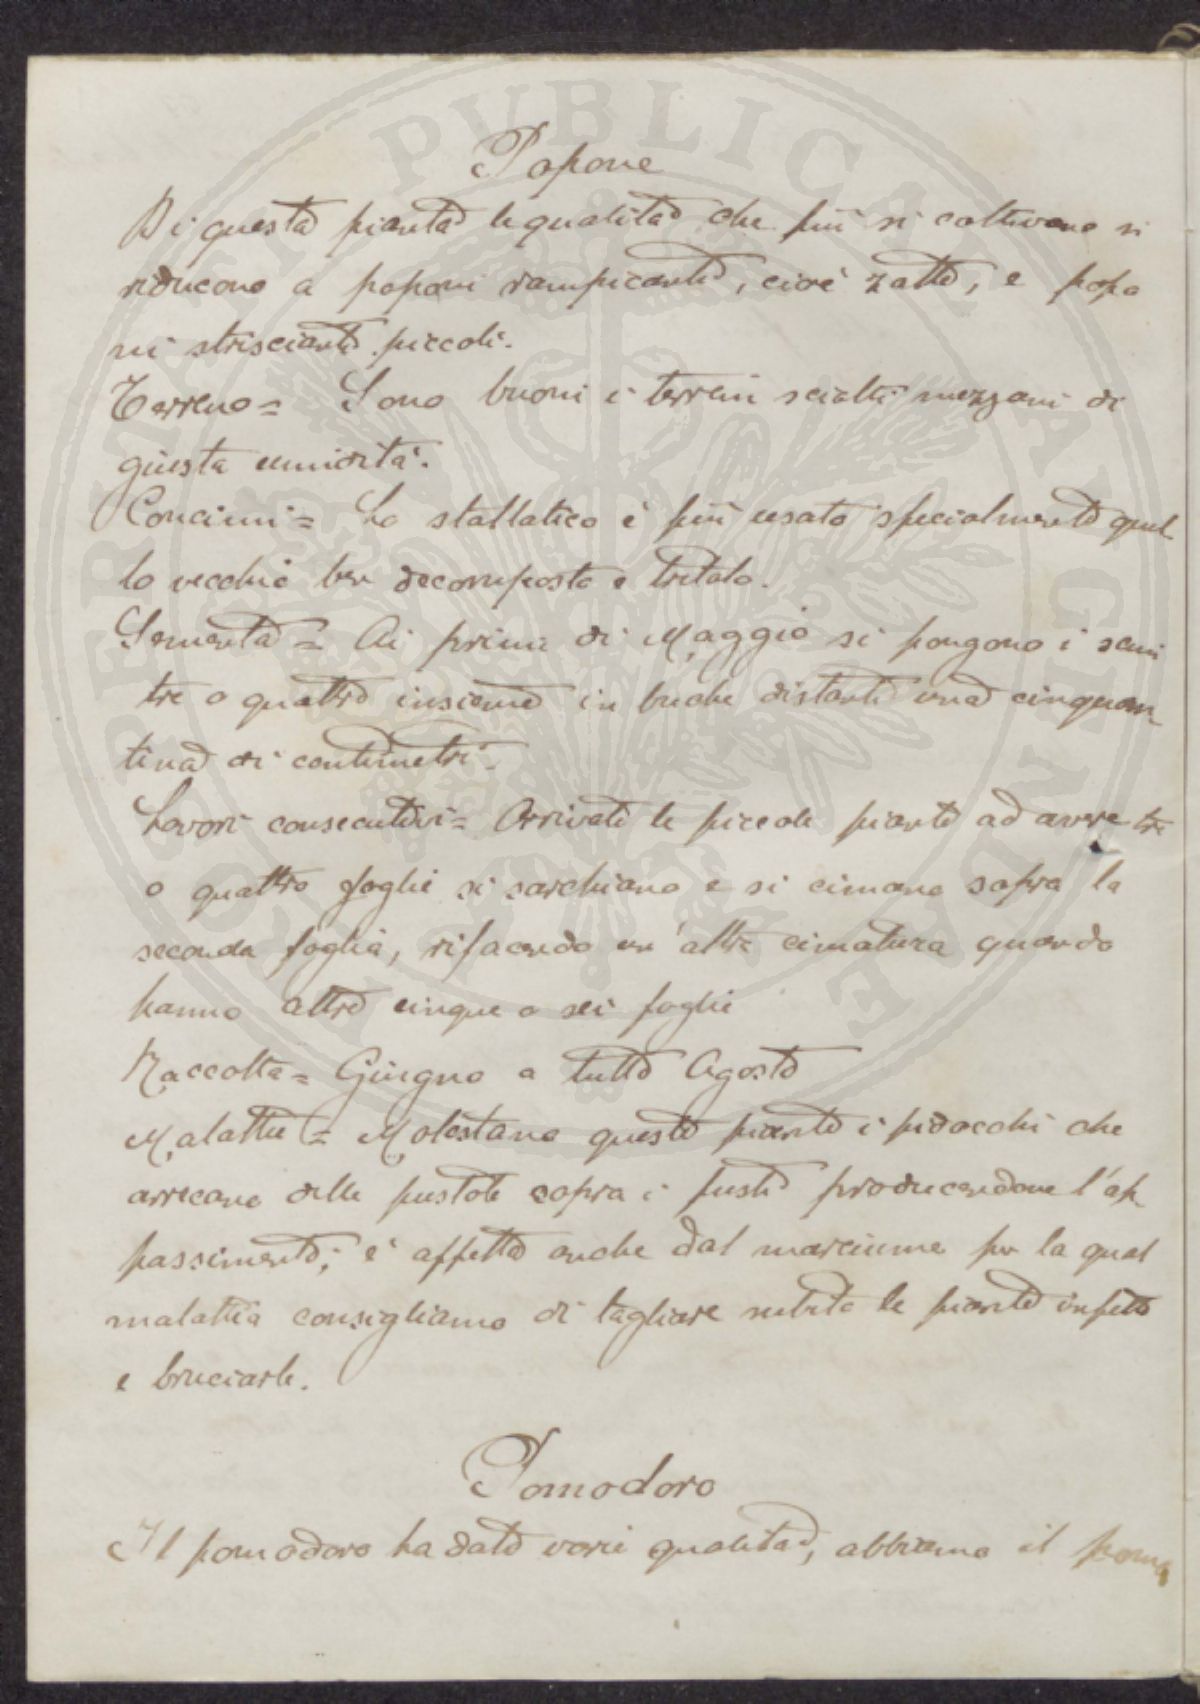 Popone
Di questa pianta le qualità che più si coltivano si
riducono a poponi rampicanti, cioè zatte, e popo
ni striscianti piccoli.
Terreno = Sono buoni i terreni sciolti mezzani di
giusta umidità.
Concimi = Lo stallatico è più usato specialmente quel
lo vecchio ben decomposto e tritato.
Sementa = Ai primi di Maggio si pongono i semi
tre o quattro insieme in buche distanti una cinquan
tina di centimetri.
Lavori consecutivi = Arrivate le piccole piante ad avere tre
o quattro foglie si sarchiano e si cimano sopra la
seconda foglia, rifacendo un'altra cimatura quando
hanno altre cinque o sei foglie
Raccolta = Giugno a tutto Agosto
Malattie = Molestano queste piante i pidocchi che
arrecano delle pustole sopra i fusti producendone l'ap
passimento; è affetta anche dal marciume per la qual
malattia consigliamo di tagliare subito le piante infette
e bruciarle.
Pomodoro
Il pomodoro ha dato varie qualità, abbiamo il pomo